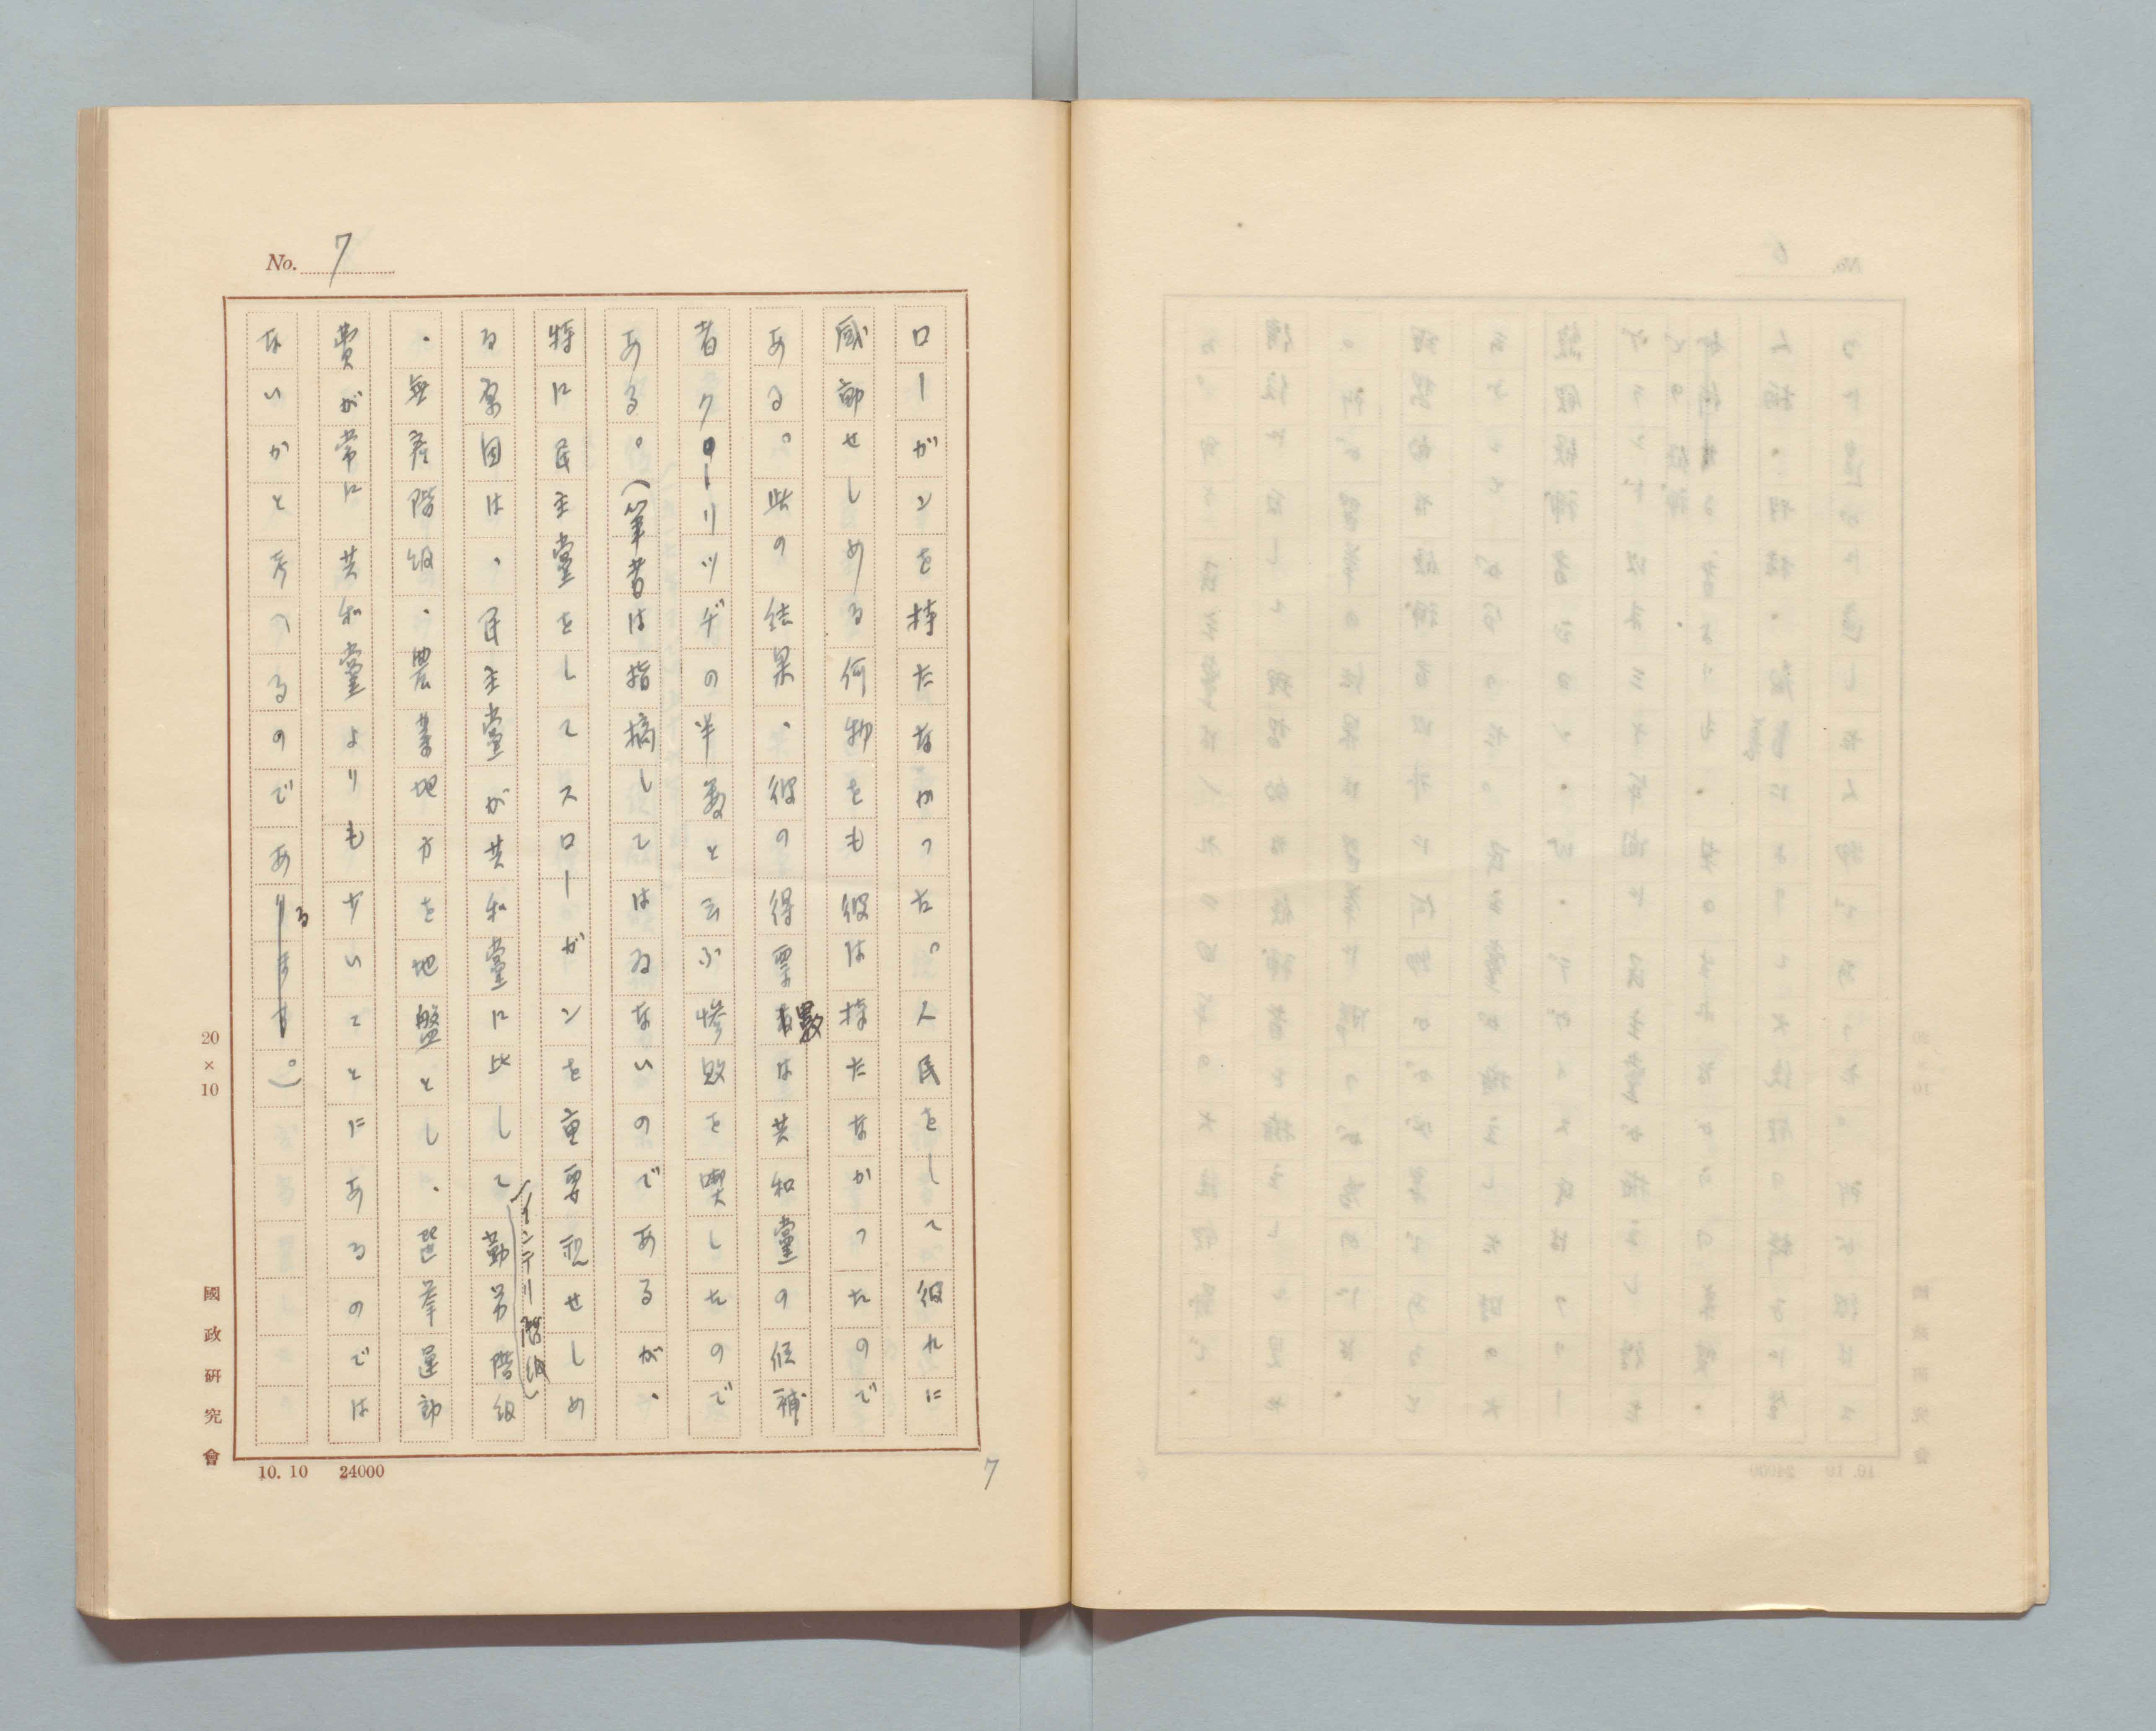 No. 7
ローガンを持たなかつた。人民をして彼れに
感動せしめる何物をも彼は持たなかつたので
ある。此の結果、彼の得票數は共和黨の候補
者クーリッヂの半數と云ふ惨敗を喫したので
ある。(筆者は指摘してはゐないのであるが、
特に民主黨をしてスローガンを重要視せしめ
る原因は、民主黨が共和黨に比して(インテリ階級)勤労階級
・無産階級・農業地方を地盤とし、選挙運動
費が常に共和黨よりも少いことにあるのでは
ないかと考へるのである。)
20×10
國政研究會
10.10 24000
7